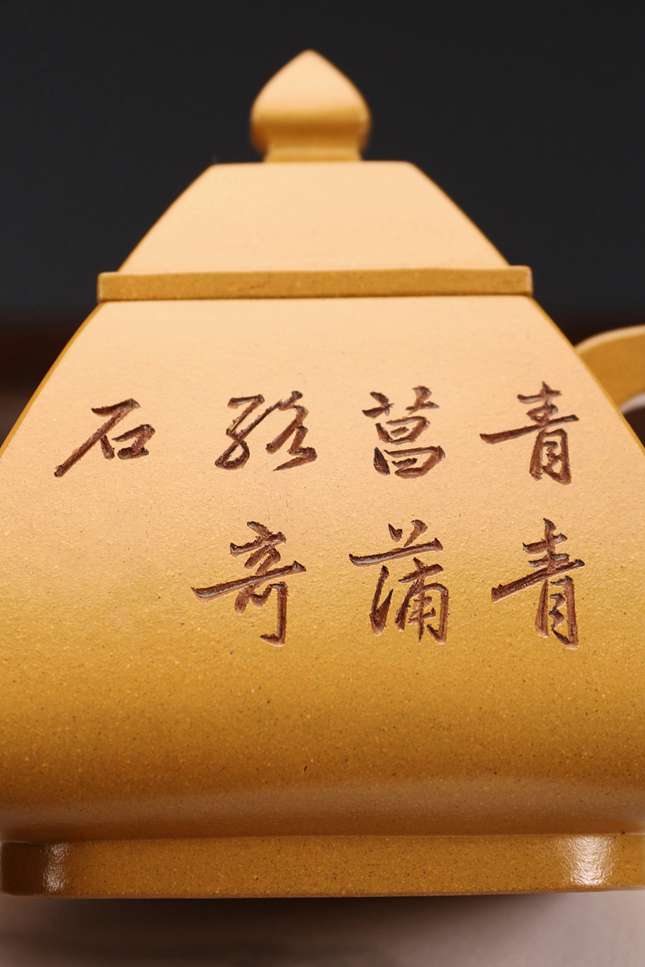 青青
菖蒲
络奇
石